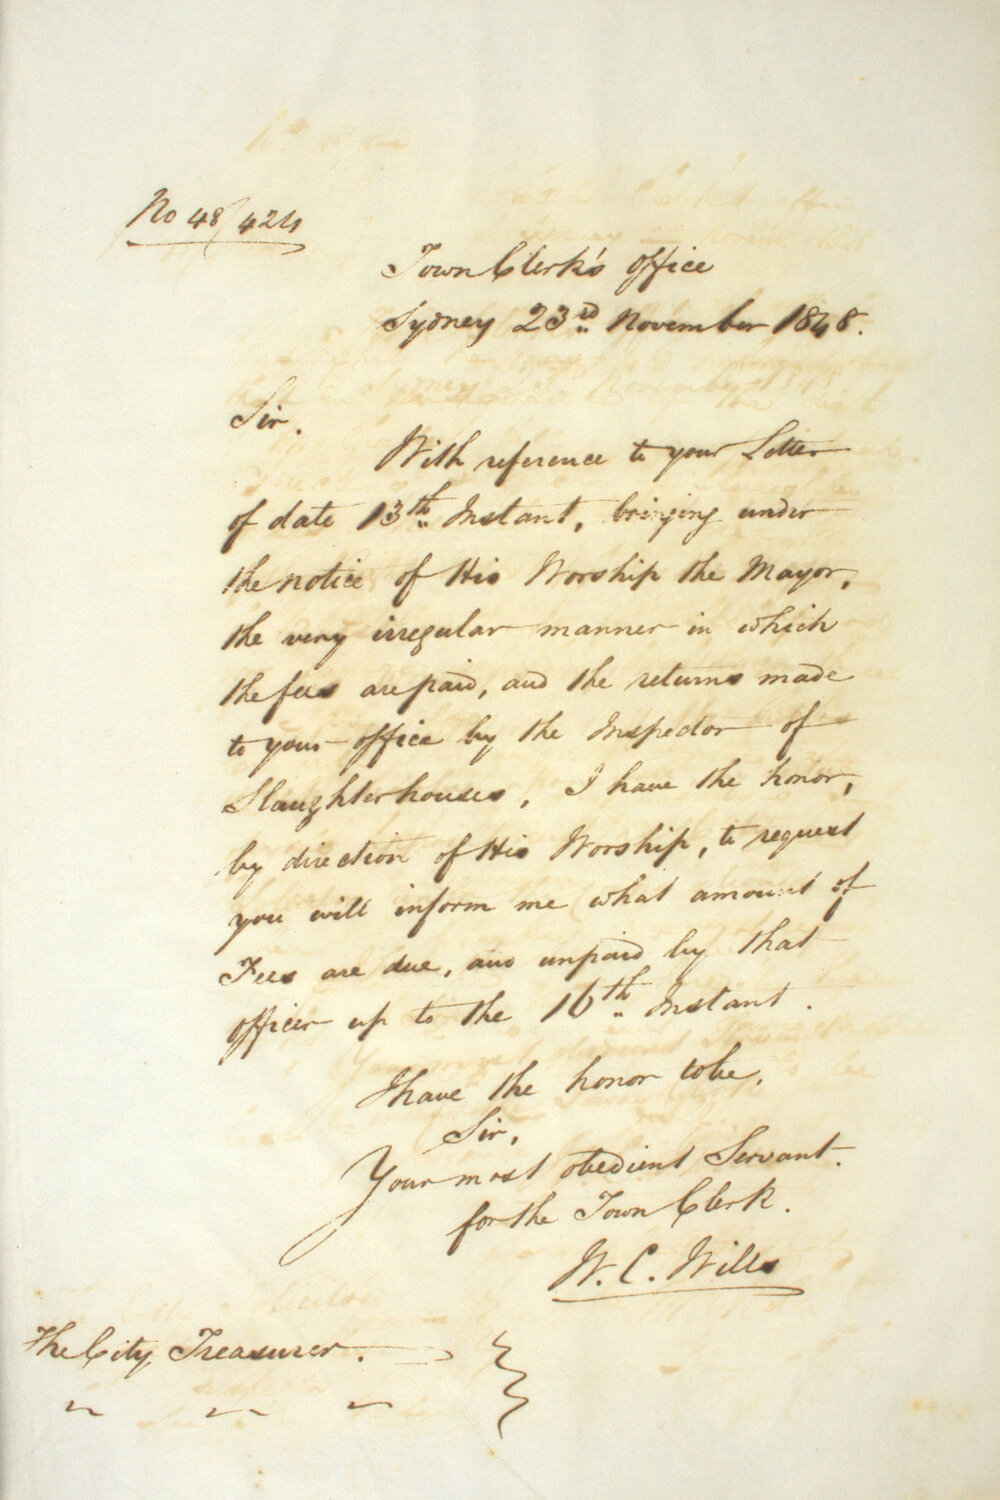 No 48/424
Town Clerk's office
Sydney 23rd November 1848.
Sir.
With reference to your Letter
of date 13th Instant, bringing under
the notice of His Worship the Mayor,
the very irregular manner in which
the fees are paid, and the returns made
to your office by the Inspector of
Slaughterhouses, I have the honor,
by direction of His Worship, to request
you will inform me what amount of
Fees are due, and unpaid by that
officer up to the 16th Instant.
I have the honor to be,
Sir,
Your most obedient Servant.
for the Town Clerk.
W. C. Wills
The City Treasurer.